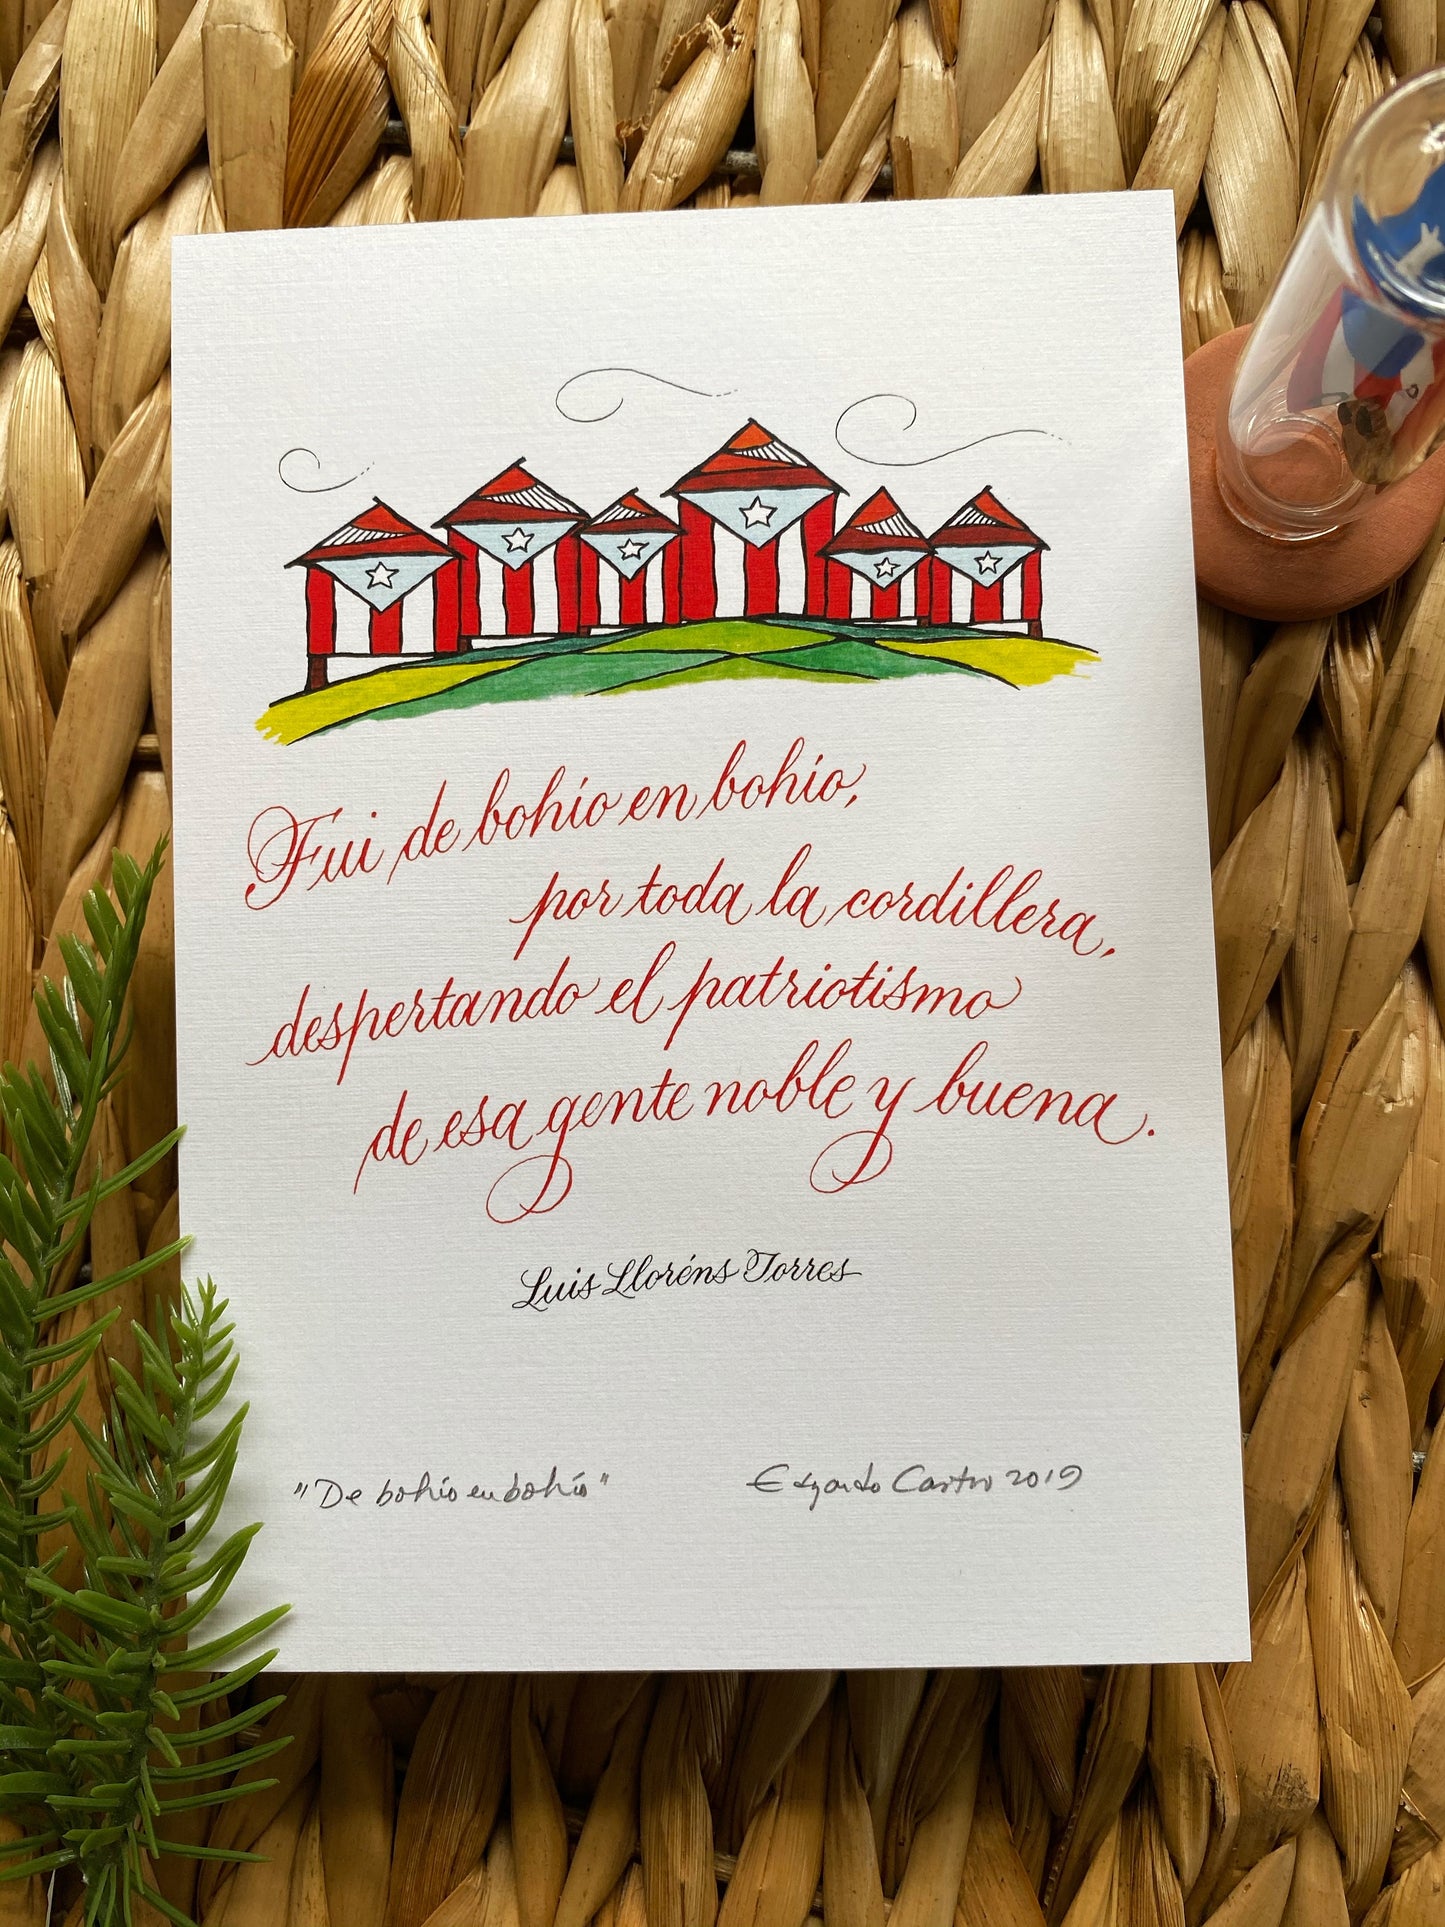 Fui de bohío en bohío,
por toda la cordillera,
despertando el patriotismo
de esa gente noble y buena.
Luis Lloréns Torres
"De bohío en bohío" Edgardo Castro 2019